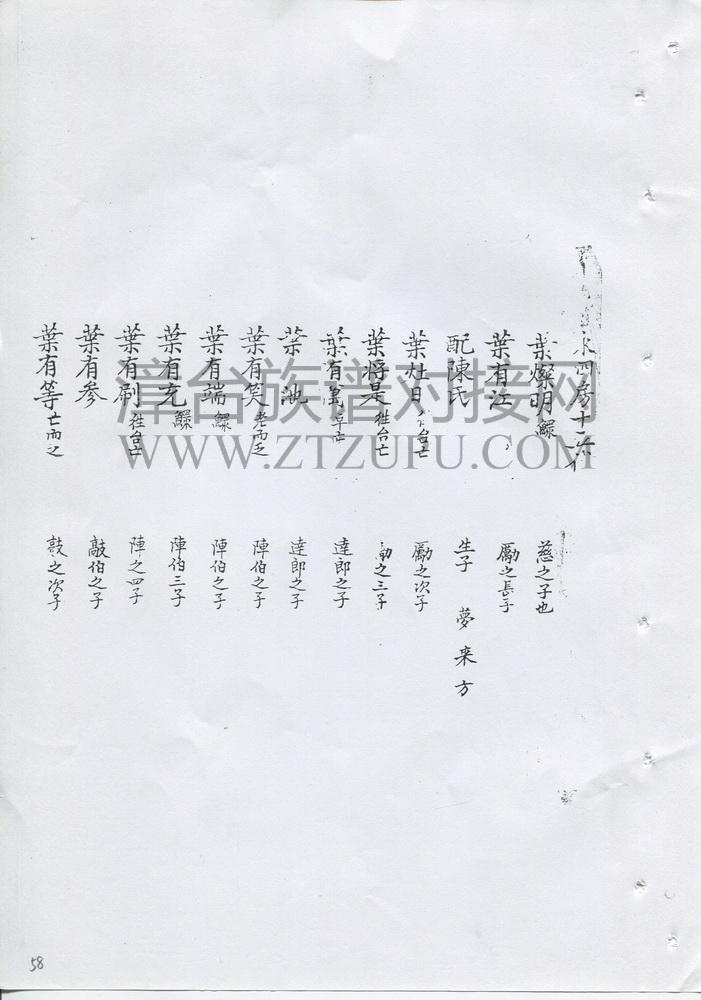 水四房十一
葉燦明 鰥 慈之子也
葉有江 勵之長子
配陳氏 生子 夢 来 方
葉灶日 台亡 勵之次子
葉将是 往台亡 勵之三子
葉有義 早亡 達郎之子
葉池 達郎之子
葉有笑 老而乏 陣伯之子
葉有端 鰥 陣伯之子
葉有充 鰥 陣伯三子
葉有刷 往台亡 陣之四子
葉有参 敲伯之子
葉有等 亡而乏 敲之次子
漳台族谱对接网
WWW.ZTZUPU.COM
58